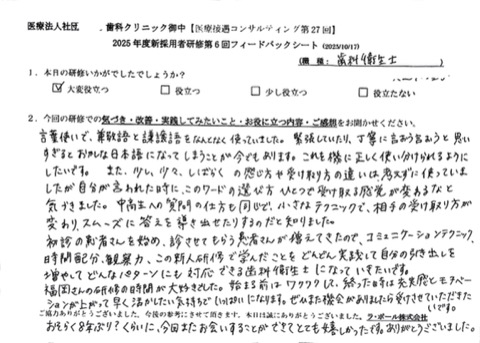 医療法人社団 歯科クリニック御中【医療接遇コンサルティング第27回】
2025年度新採用者研修第6回フィードバックシート (2025/10/17)
(職種: 歯科衛生士
1. 本日の研修いかがでしたでしょうか?
☑ 大変役立つ □ 役立つ □ 少し役立つ □ 役立たない
2. 今回の研修での気づき・改善・実践してみたいこと・お役に立つ内容・ご感想をお聞かせください。
言葉使いで、尊敬語と謙譲語をなんとなく使っていました。緊張していたり、丁寧に言おう言おうと思い
すぎるとおかしな日本語になってしまうことが今でもあります。これを機に正しく使い分けられるように
したいです。また、少し、少々、しばらくの感じ方や受け取り方の違いは考えずに使っていま
したが自分が言われた時に、このワードの選び方ひとつで受け取る感覚が変わるなと
気づきました。中高生への質問の仕方も同じで、小さなテクニックで、相手の受け取り方が
変わり、スムーズに答えを導き出せたりするのだと知りました。
初診の患者さんを始め、診させてもらう患者さんが増えてきたので、コミュニケーションテクニック、
時間配分、観察力、この新人研修で学んだことをどんどん実践して自分の引き出しを
増やしてどんなパターンにも対応できる歯科衛生士になっていきたいです。
福岡さんの研修の時間が大好きでした。始まる前はワクワクして、終った時は充実感とモチベー
ションが上がって早く活かしたい気持ちでいっぱいになります。ぜひまた機会がありましたら受けさせていただきた
いです。
ご協力ありがとうございました。今後の参考にさせて頂きます。本日は誠にありがとうございました。 ラ・ポール株式会社
おそらく8年ぶり?くらいに、今回またお会いすることができてとても嬉しかったです。ありがとうございました。